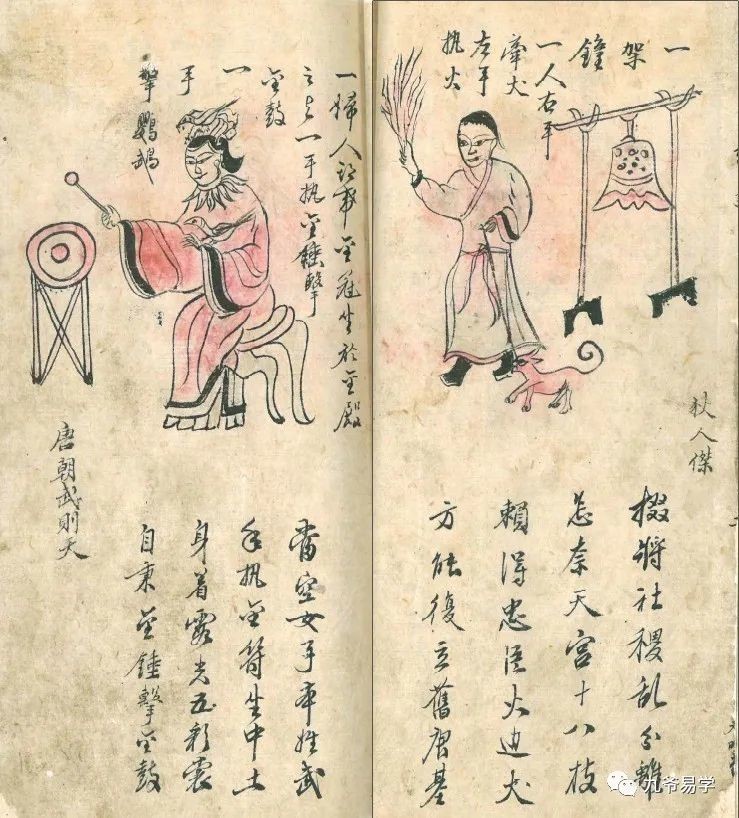 一
架
鐘
一人右手
牽犬
左手
执火
狄人傑
掇將社稷乱分離
怎奈天宮十八枝
賴得忠臣火边犬
方能復立舊唐基
一婦人头戴金冠坐於金殿
之上一手执金锤擊
金鼓
一
手
擎鸚鵡
當空女子本姓武
手执金符生中土
身着霞光五彩裳
自秉金錘擊金鼓
唐朝武則天
九爷易学